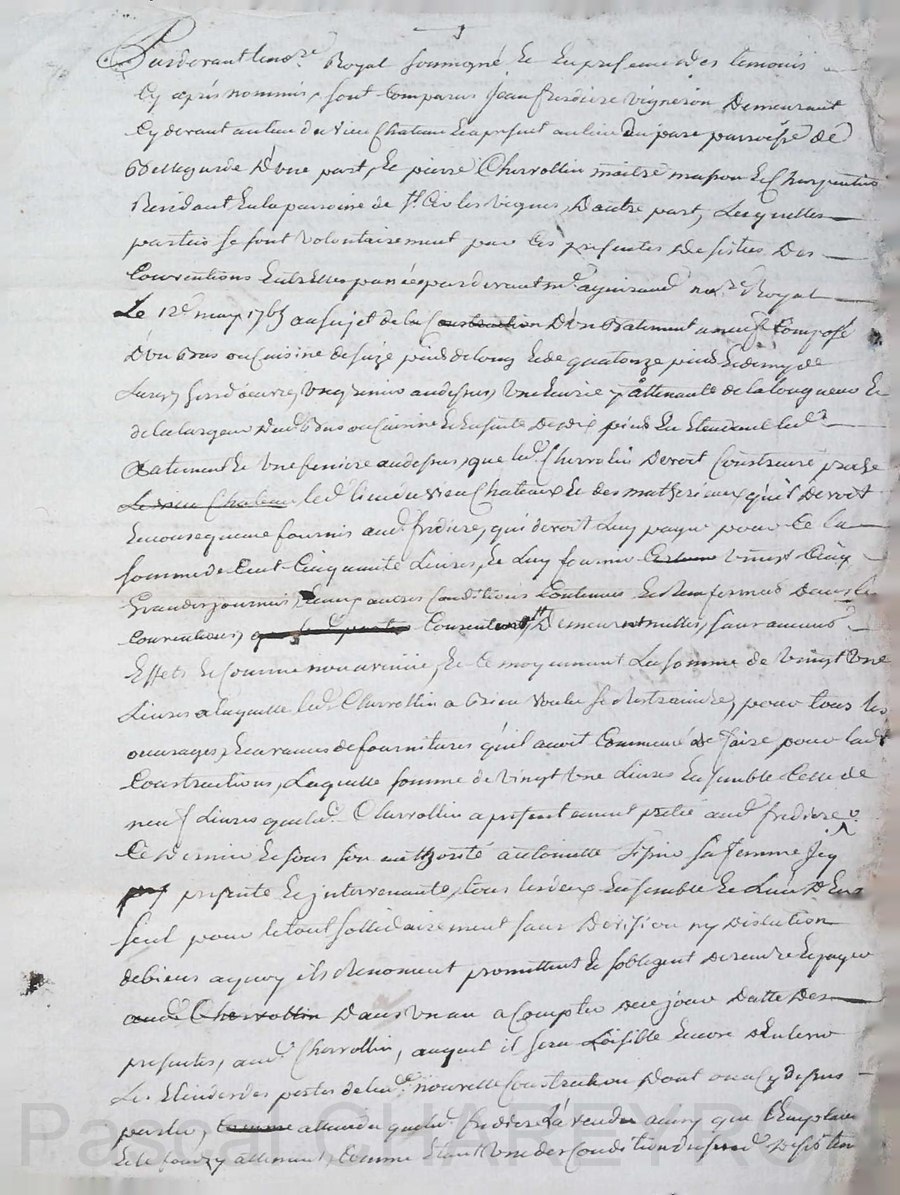 Pardevant le no.re Royal soussigné Et En presence des temoins
Cy aprés nommés, sont Comparus Jean fredière vigneron Demeurant
Cy devant au lieu du vieu Chateau Et a présent au lieu du parc parroisse de
Bellegarde D'une part, Et pierre Chervollin maitre masson Et Charpentier
Residant En la parroisse de s.t les vignes, D'autre part, Lesquelles
parties se sont volontairement par Ces presentes Desisties Des
Conventions Entr'Elles passées pardevant m.e no.re Royal
Le 12.e may 1765 au sujet de la Construction D'un Batiment a neuf Composé
D'un Bas ou Cuisine de seize pieds de long Et de quatorze pieds Et demy de
Large, grenier au dessus, Une Ecurie y attenante de la longueur Et
de la largeur Dud. Bas ou Cuisine Et Ensuite De dix pieds En led.
Batiment Et Une feniere au dessus, que led. Chervollin Devoit Construire proche
Le vieu Chateau led. lieu du vieu Chateau Et des matheriaux qu'il Devoit
En consequence fournir aud. fredière, qui devoit Luy payer pour Ce la
somme de Cent Cinquante Livres, Et Luy fournir vingt Cinq
Grandes journées, Et aux autres Conditions Contenues Et Renfermées Dans les
Conventions, Consentent Demeurent nulles, sans aucuns
Effets Et Comme non avenue, Et Ce moyennant La somme de vingt Une
Livres a laquelle led. Chervollin a Bien voulu se Restraindre, pour tous les
ouvrages, Et avances de fournitures qu'il avoit Commencé de faire pour lad.
Construction, Laquelle somme de vingt Une Livres Ensemble Celle de
neuf Livres que led. Chervollin a présentement preté aud. fredière
Ce Dernier Et sous son authorité antoinette sa femme Icy
présente Et intervenante, tous les deux Ensemble Et L'un D'Eux
seul pour le tout sollidairement sans Division ny Discution
de biens a quoy ils Renoncent promettent Et s'obligent De rendre Et payer
aud. Chervollin Dans Un an a Compter De ce jour Datte Des
presentes, aud. Chervollin, auquel il sera Loisible Encore D'Enlever
Les des portes de lad. nouvelle Construction Dont on a Cy dessus
parlé, Comme attendu que led. fredière L'a vendu ainsy que l'Emplacement
Et le attenant, Comme Etant Une des Conditions du present Desistement